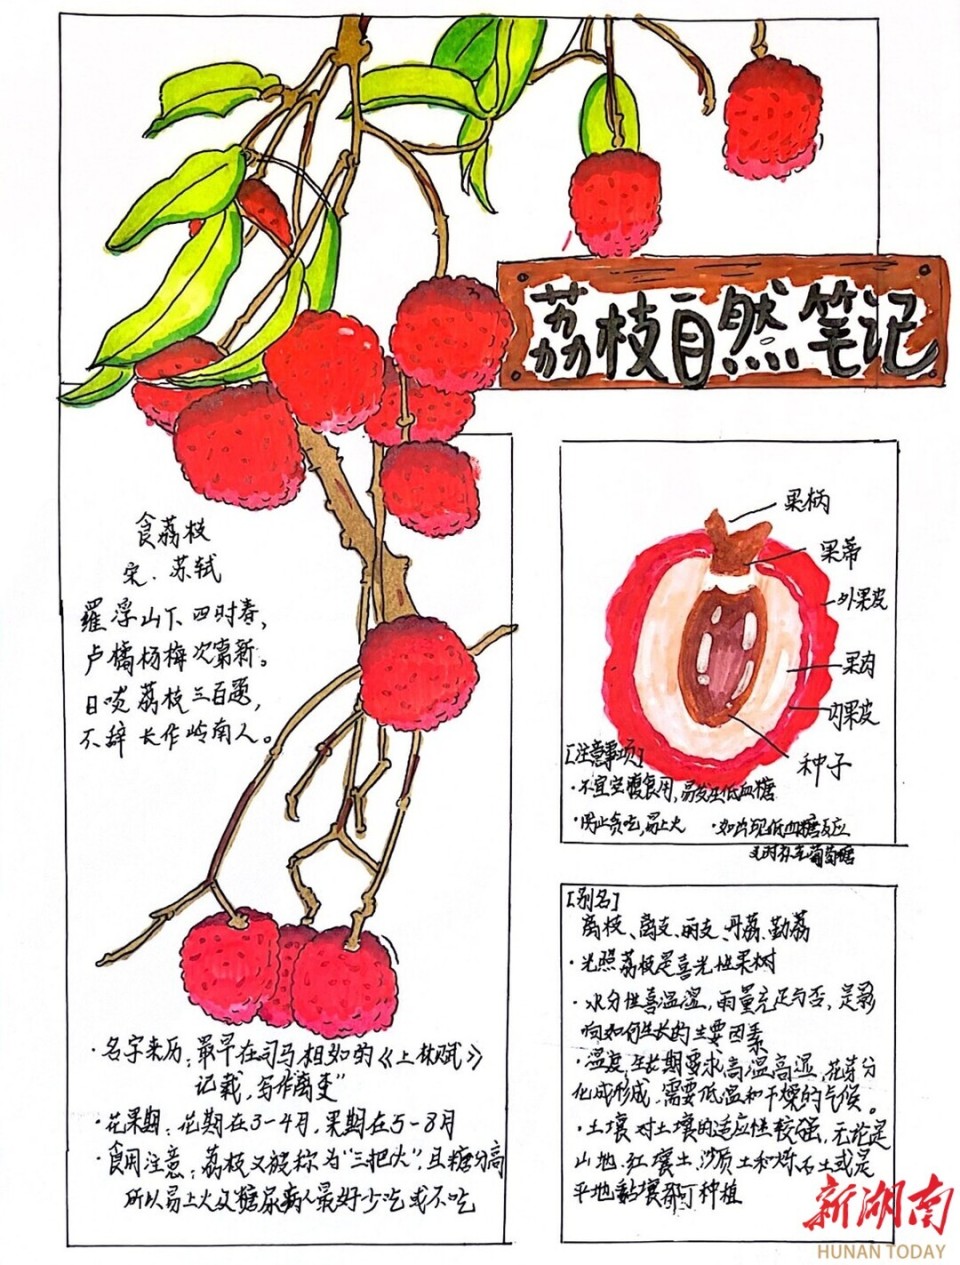 荔枝自然笔记
食荔枝
宋.苏轼
罗浮山下四时春，
卢橘杨梅次第新。
日啖荔枝三百颗，
不辞长作岭南人。
果柄
果蒂
外果皮
果肉
内果皮
种子
[注意事项]
·不宜空腹食用，易发生低血糖
·防止贪吃，易上火
·如出现低血糖反应
及时补充葡萄糖
[别名]
离枝、离支、丽支、丹荔、勤荔
·光照荔枝是喜光性果树
·水分性喜温湿，雨量充足与否，是影
响如何生长的主要因素
·温度，生长期要求高温高湿，花芽分
化成形成，需要低温和干燥的气候。
·土壤 对土壤的适应性较强，无论是
山地、红壤土、沙质土和砾石土或是
平地黏壤都可种植
·名字来历：最早在司马相如的《上林赋》
记载，写作离支”
·花果期：花期在3-4月，果期在5-8月
·食用注意：荔枝又被称为“三把火”，且糖分高
所以易上火及糖尿病人最好少吃或不吃
新湖南
HUNAN TODAY